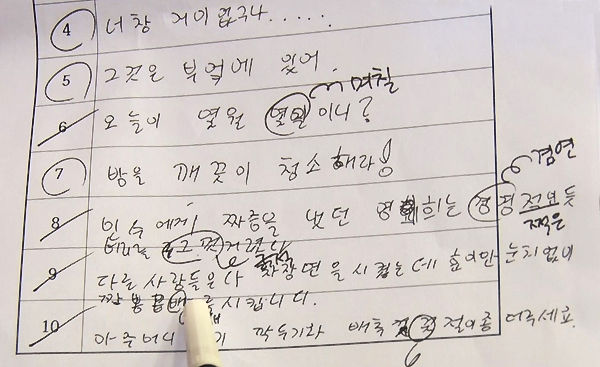 4 너참 거이 업구나.....
5 그것은 부엌에 있어.
며칠
6 오늘이 몇월 몇일 이니?
7 방을 깨끗이 청소해라!
겸연
8 민수에게 짜증을 냈던 영희는 경정 적으듯
쩍은
머리를
9 다른 사람들은 다 짜장면을 시켰는데 효이만 눈치없이
짬뽕 를 시킵니다.
10 아주머니 깍두기와 배추 절이좀 더주세요.